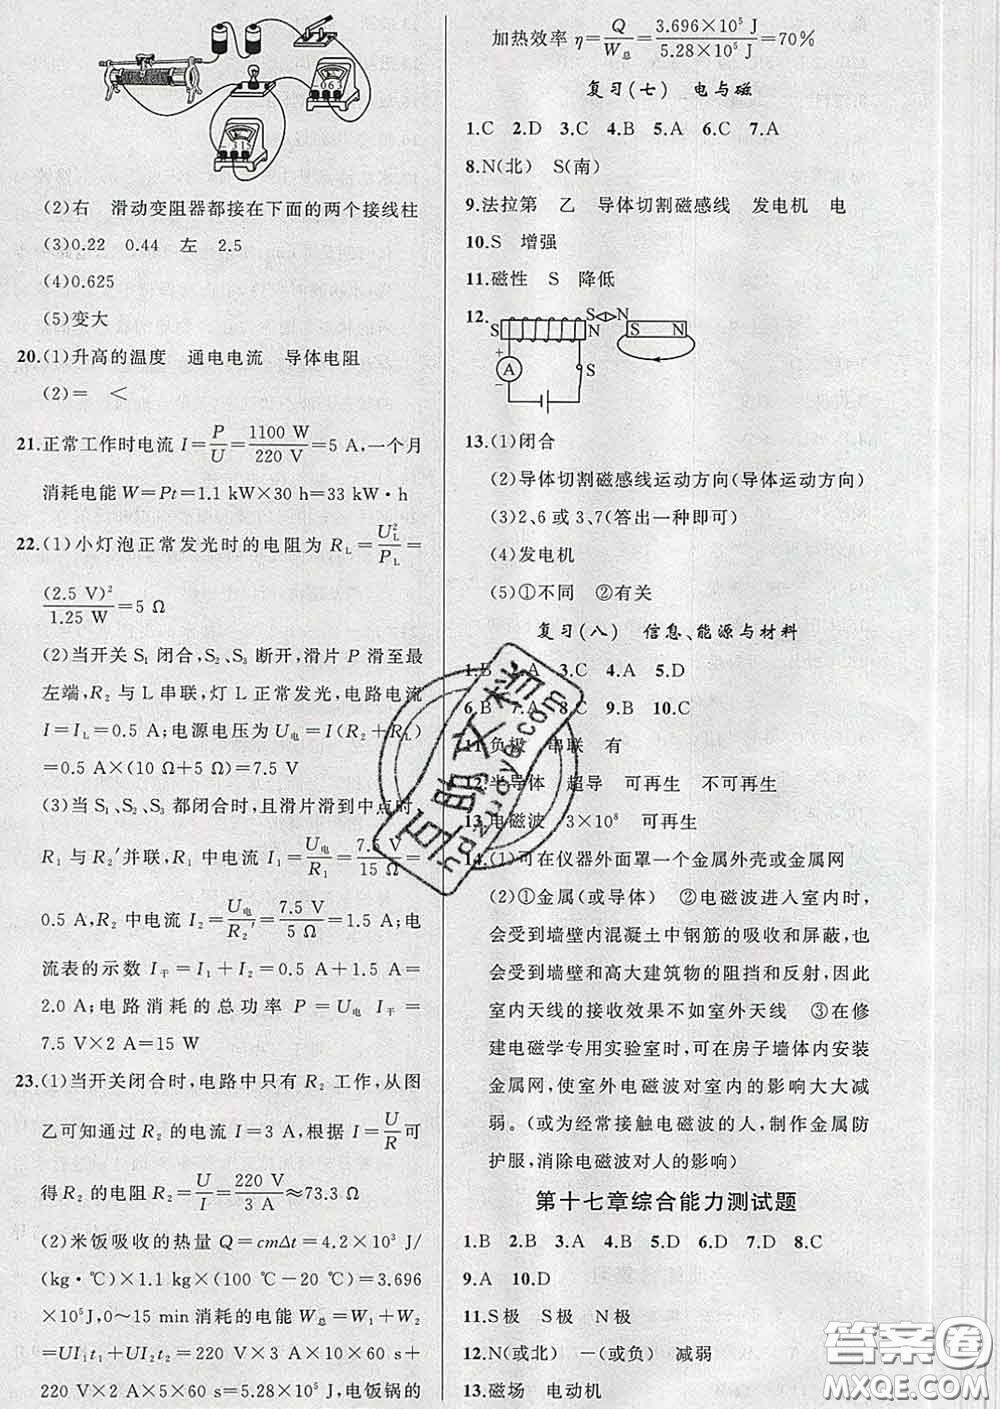 (2)右　滑动变阻器都接在下面的两个接线柱
(3)0.22　0.44　左　2.5
(4)0.625
(5)变大
20.(1)升高的温度　通电电流　导体电阻
(2)=　<
21.正常工作时电流 I=P/U=1100 W/220 V=5 A,一个月
消耗电能 W=Pt=1.1 kW×30 h=33 kW·h
22.(1)小灯泡正常发光时的电阻为 R_L=U_L²/P_L=
(2.5 V)²/1.25 W=5 Ω
(2)当开关 S₁ 闭合,S₂、S₃ 断开,滑片 P 滑至最
左端,R₂ 与 L 串联,灯 L 正常发光,电路电流
I=I_L=0.5 A;电源电压为 U电=I(R₂+R_L)
=0.5 A×(10 Ω+5 Ω)=7.5 V
(3)当 S₁、S₂、S₃ 都闭合时,且滑片滑到中点时,
R₁ 与 R₂′并联,R₁ 中电流 I₁=U电/R₁=7.5 V/15 Ω=
0.5 A,R₂ 中电流 I₂=U电/R₂′=7.5 V/5 Ω=1.5 A;电
流表的示数 I干=I₁+I₂=0.5 A+1.5 A=
2.0 A;电路消耗的总功率 P=U电 I干=
7.5 V×2 A=15 W
23.(1)当开关闭合时,电路中只有 R₂ 工作,从图
乙可知通过 R₂ 的电流 I=3 A,根据 I=U/R可
得 R₂ 的电阻 R₂=U/I=220 V/3 A≈73.3 Ω
(2)米饭吸收的热量 Q=cmΔt=4.2×10³ J/
(kg·℃)×1.1 kg×(100 ℃-20 ℃)=3.696
×10⁵J,0~15 min 消耗的电能 W总=W₁+W₂
=UI₁t₁+UI₂t₂=220 V×3 A×10×60 s+
220 V×2 A×5×60 s=5.28×10⁵J,电饭锅的
加热效率 η=Q/W总=3.696×10⁵ J/5.28×10⁵ J=70%
复习(七)　电与磁
1.C　2.D　3.C　4.B　5.A　6.C　7.A
8.N(北)　S(南)
9.法拉第　乙　导体切割磁感线　发电机　电
10.S　增强
11.磁性　S　降低
12.
S　N　S　N　S　N
+　A　-　S
13.(1)闭合
(2)导体切割磁感线运动方向(导体运动方向)
(3)2、6或3、7(答出一种即可)
(4)发电机
(5)①不同　②有关
复习(八)　信息、能源与材料
1.B　2.A　3.C　4.A　5.D
6.B　7.A　8.C　9.B　10.C
11.负极　串联　有
12.半导体　超导　可再生　不可再生
13.电磁波　3×10⁸　可再生
14.(1)可在仪器外面罩一个金属外壳或金属网
(2)①金属(或导体)　②电磁波进入室内时,
会受到墙壁内混凝土中钢筋的吸收和屏蔽,也
会受到墙壁和高大建筑物的阻挡和反射,因此
室内天线的接收效果不如室外天线　③在修
建电磁学专用实验室时,可在房子墙体内安装
金属网,使室外电磁波对室内的影响大大减
弱。(或为经常接触电磁波的人,制作金属防
护服,消除电磁波对人的影响)
第十七章综合能力测试题
1.B　2.B　3.A　4.B　5.A　6.B　7.D　8.C
9.A　10.D
11.S极　S极　N极
12.N(或北)　-(或负)　减弱
13.磁场　电动机
百助文档
hdzuoye.com
答案圈
MXQE.COM